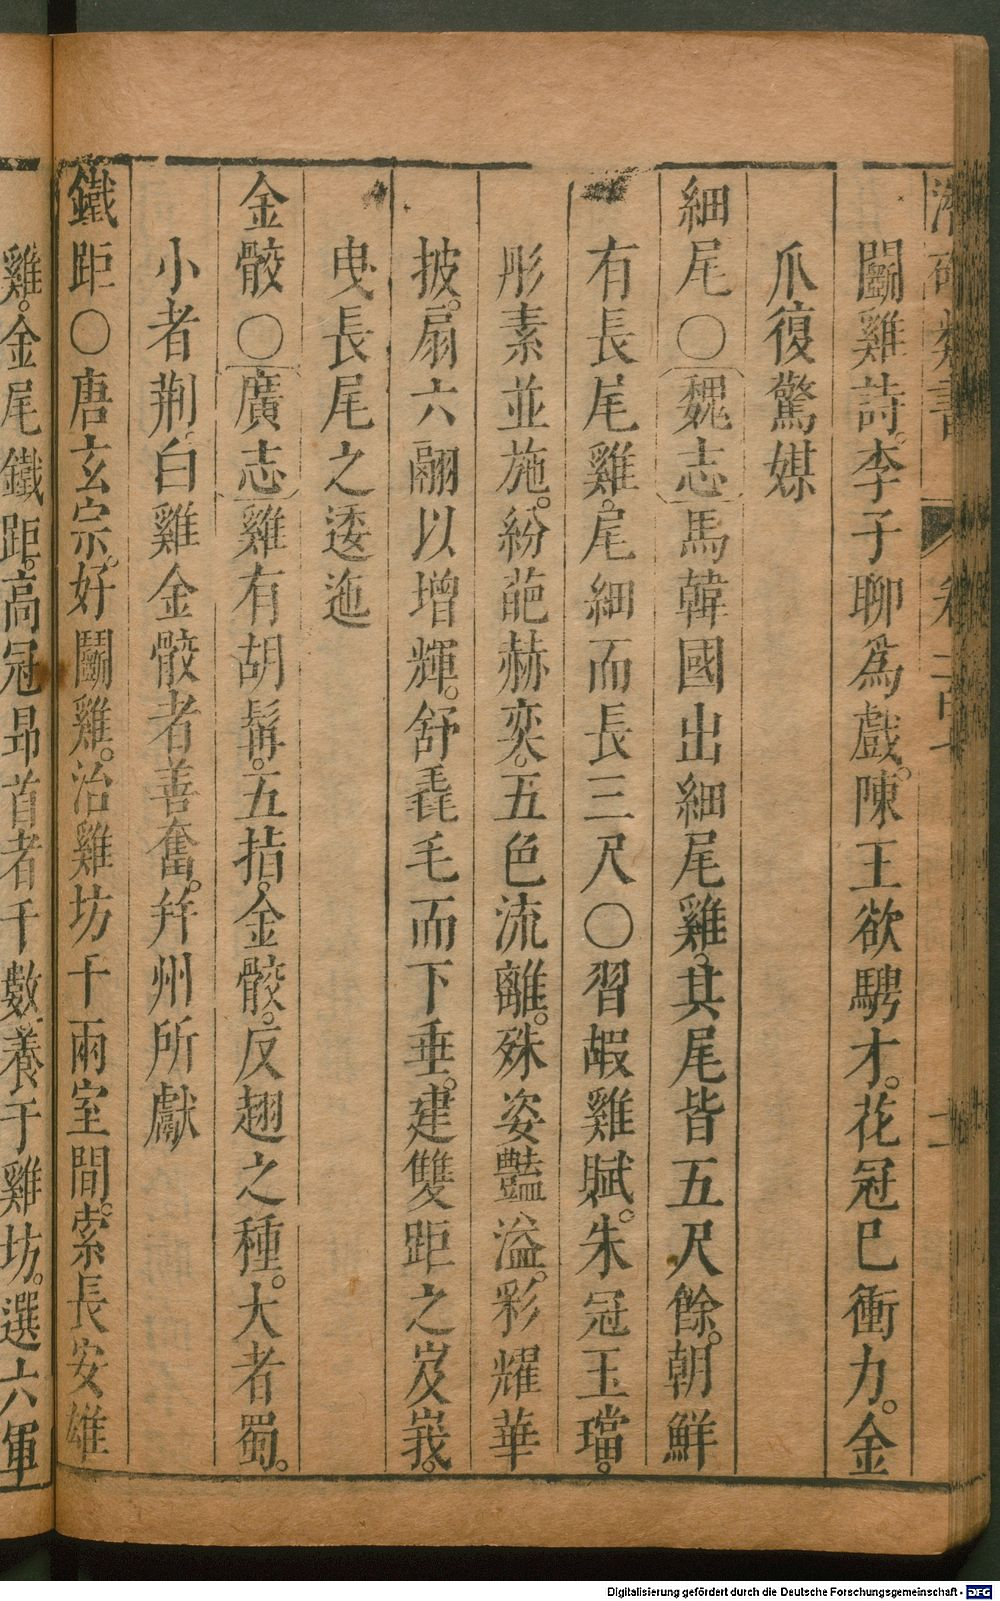 鬬雞詩。李子聊為戲。陳王欲騁才。花冠巳衝力。金
爪復驚媒
細尾〇魏志馬韓國出細尾雞。其尾皆五尺餘。朝鮮
有長尾雞。尾細而長三尺〇習嘏雞賦。朱冠玉璫。
彤素並施。紛葩赫奕。五色流離。殊姿豔溢。彩耀華
披。扇六翮以增輝。舒毳毛而下垂。建雙距之岌峩。
曳長尾之逶迤
金骹〇廣志雞有胡髯。五指。金骹。反翅之種。大者蜀。
小者荆。白雞金骹者善奮。幷州所獻
鐵距〇唐玄宗。好鬬雞。治雞坊于兩宫間。索長安雄
雞。金尾鐵距。高冠昂首者千數養于雞坊。選六軍
Digitalisierung gefördert durch die Deutsche Forschungsgemeinschaft - DFG